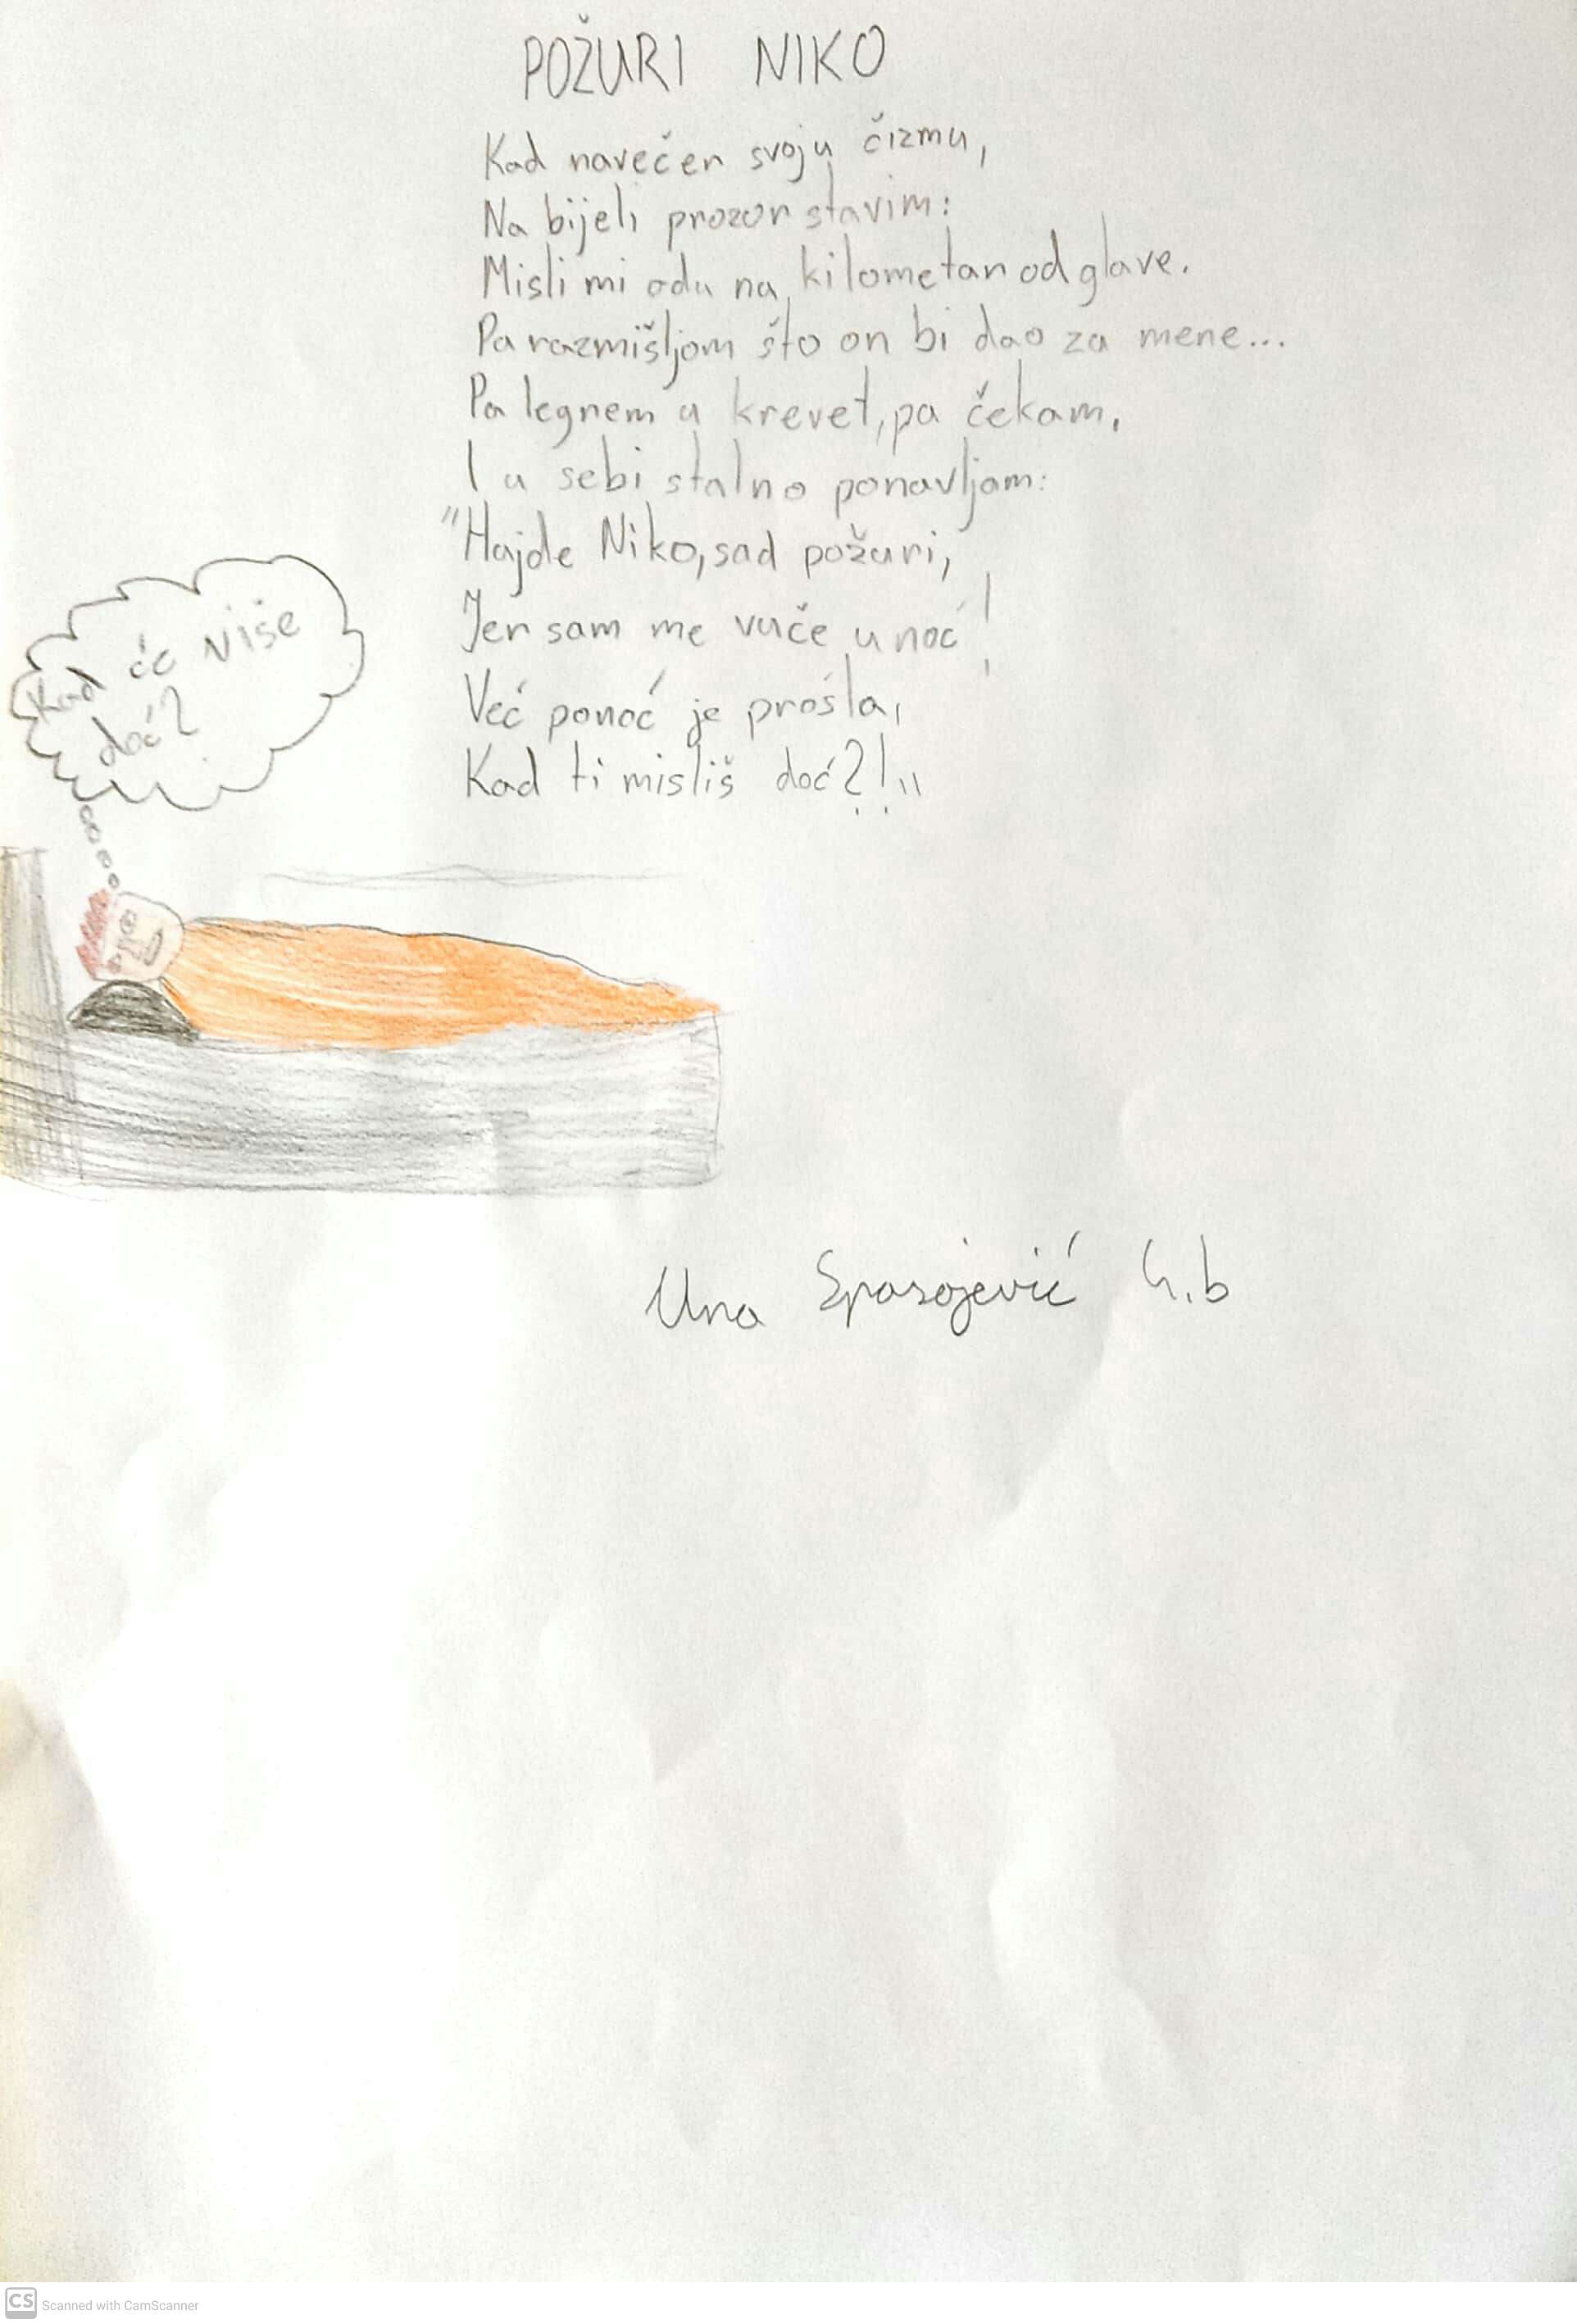 POŽURI NIKO
Kad navečer svoju čizmu,
Na bijeli prozor stavim:
Misli mi odu na kilometar od glave.
Pa razmišljam što on bi dao za mene...
Pa legnem u krevet, pa čekam,
I u sebi stalno ponavljam:
"Hajde Niko, sad požuri,
Jer san me vuče u noć!
Već ponoć je prošla,
Kad ti misliš doć?!"
Kad će više
doć?
Una Spasojević 4.b
CS Scanned with CamScanner